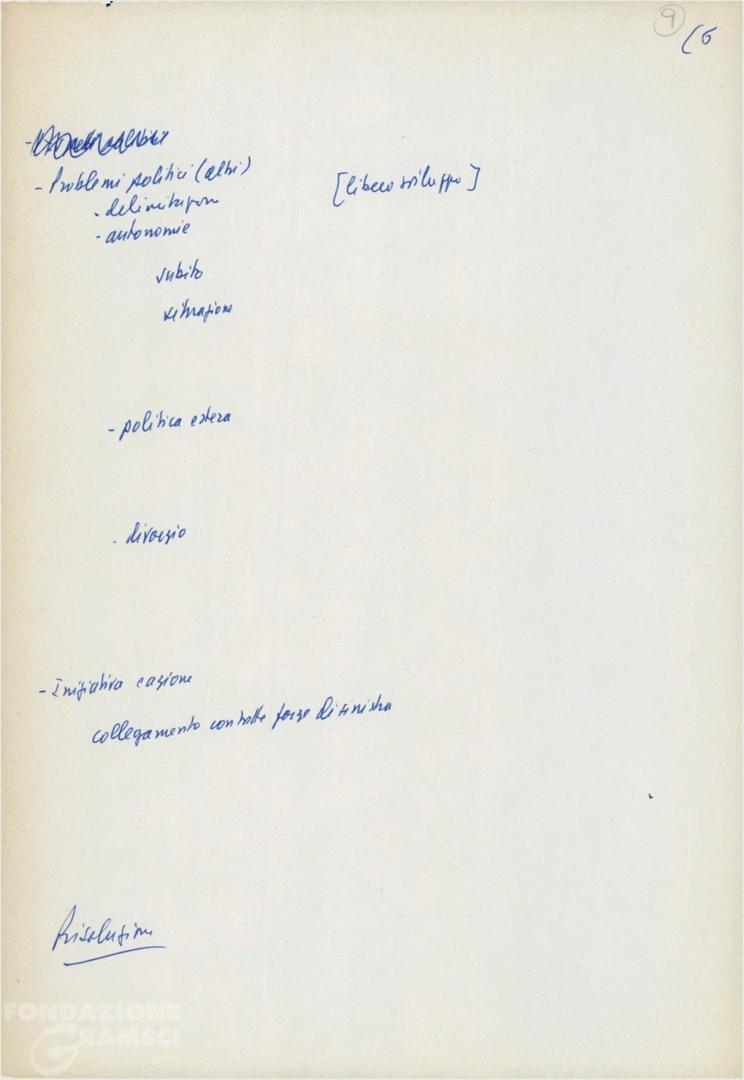 9
(6
- Problemi politici (altri)
[libero sviluppo]
- delimitazione
- autonomie
subito
situazione
- politica estera
- divorzio
- Iniziativa e azione
collegamento con tutte forze di sinistra
Risoluzione
FONDAZIONE
GRAMSCI